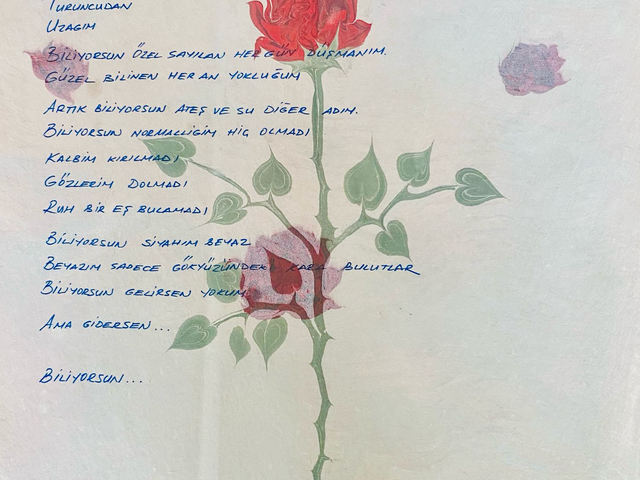 Turuncudan
Uzağım
Biliyorsun özel sayılan her gün düşmanım.
Güzel bilinen her an yokluğum
Artık biliyorsun ateş ve su diğer adım.
Biliyorsun normalliğim hiç olmadı
Kalbim kırılmadı
Gözlerim dolmadı
Ruh bir eş bulamadı
Biliyorsun siyahım beyaz
Beyazım sadece gökyüzündeki kara bulutlar
Biliyorsun gelirsen yokum
Ama gidersen...
Biliyorsun...